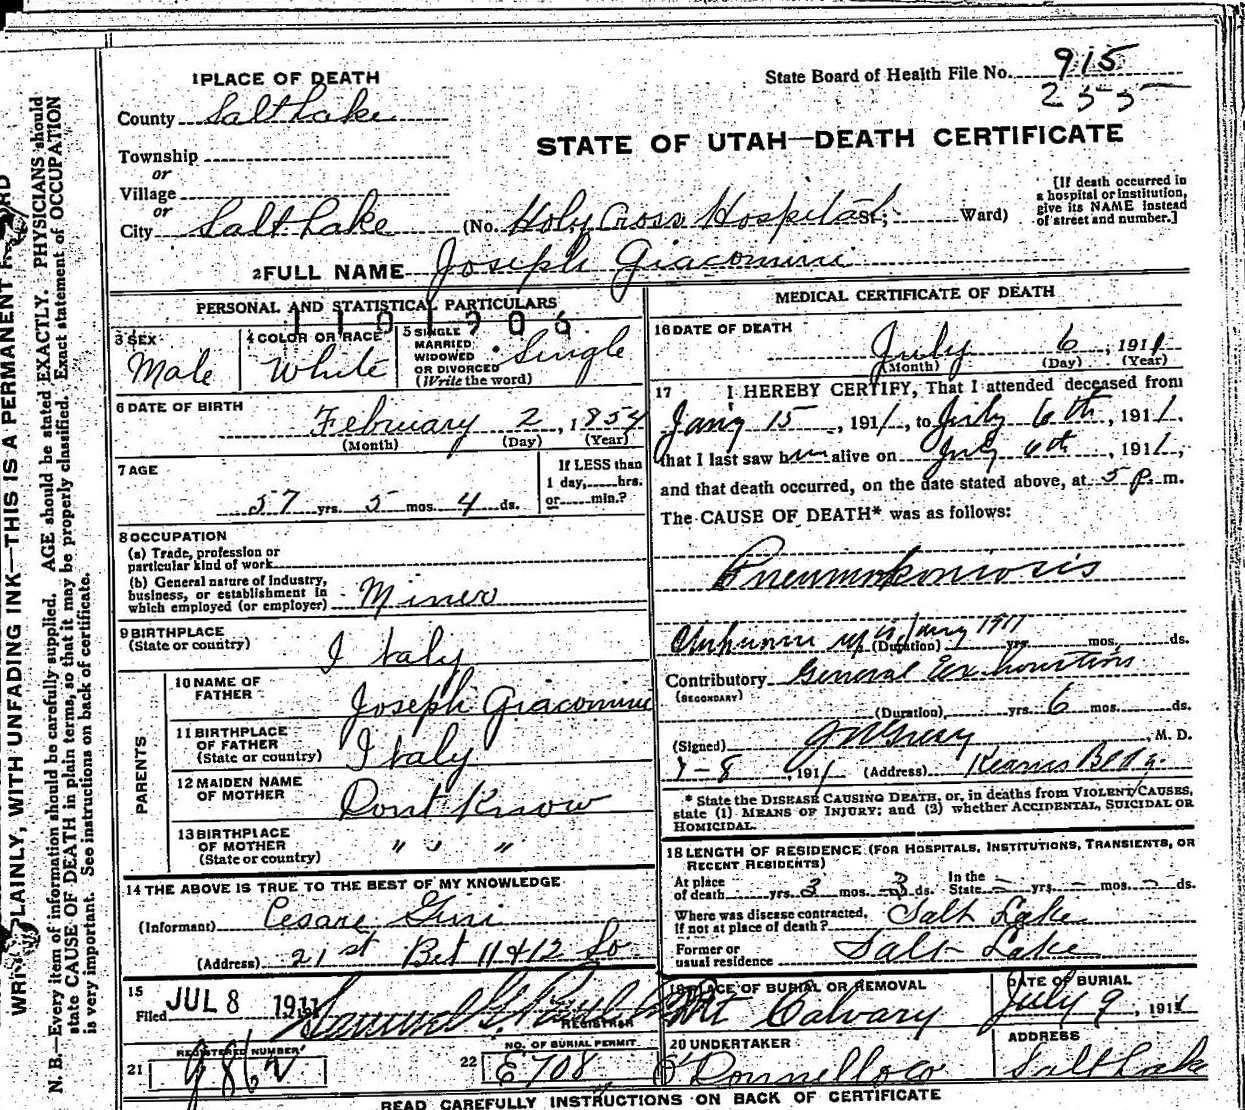 WRITE PLAINLY, WITH UNFADING INK—THIS IS A PERMANENT RECORD
N. B.—Every item of information should be carefully supplied. AGE should be stated EXACTLY. PHYSICIANS should
state CAUSE OF DEATH in plain terms, so that it may be properly classified. Exact statement of OCCUPATION
is very important. See instructions on back of certificate.
1 PLACE OF DEATH
State Board of Health File No. 915
255
County Salt Lake
STATE OF UTAH—DEATH CERTIFICATE
Township
or
Village
or
City Salt Lake (No. Holy Cross Hospital St; Ward)
[If death occurred in
a hospital or institution,
give its NAME instead
of street and number.]
2 FULL NAME Joseph Giacomini
PERSONAL AND STATISTICAL PARTICULARS
1101906
3 SEX
Male
4 COLOR OR RACE
White
5 SINGLE
MARRIED
WIDOWED
OR DIVORCED
(Write the word)
Single
6 DATE OF BIRTH
February 2, 1854
(Month) (Day) (Year)
7 AGE
57 yrs. 5 mos. 4 ds.
If LESS than
1 day, hrs.
or min.?
8 OCCUPATION
(a) Trade, profession or
particular kind of work
(b) General nature of industry,
business, or establishment in
which employed (or employer) Miner
9 BIRTHPLACE
(State or country)
Italy
PARENTS
10 NAME OF
FATHER
Joseph Giacomini
11 BIRTHPLACE
OF FATHER
(State or country)
Italy
12 MAIDEN NAME
OF MOTHER
Dont Know
13 BIRTHPLACE
OF MOTHER
(State or country)
" " "
14 THE ABOVE IS TRUE TO THE BEST OF MY KNOWLEDGE
(Informant) Cesare Gini
(Address) 21st Bet 11 & 12 So
15
Filed JUL 8 1911 191
REGISTRAR
REGISTERED NUMBER
21 g862
NO. OF BURIAL PERMIT
22 E708
MEDICAL CERTIFICATE OF DEATH
16 DATE OF DEATH
July 6, 1911
(Month) (Day) (Year)
17 I HEREBY CERTIFY, That I attended deceased from
Jany 15, 1911, to July 6th, 1911.
that I last saw him alive on July 6th, 1911,
and that death occurred, on the date stated above, at 5 p. m.
The CAUSE OF DEATH* was as follows:
Pneumokoniosis
Unknown up to Jany 1911 (Duration) yrs. mos. ds.
Contributory General Exhaustion
(SECONDARY)
(Duration) yrs. 6 mos. ds.
(Signed) M. D.
7-8, 1911 (Address) Kearns Bldg.
* State the DISEASE CAUSING DEATH, or, in deaths from VIOLENT CAUSES,
state (1) MEANS OF INJURY; and (2) whether ACCIDENTAL, SUICIDAL OR
HOMICIDAL.
18 LENGTH OF RESIDENCE (FOR HOSPITALS, INSTITUTIONS, TRANSIENTS, OR
RECENT RESIDENTS)
At place
of death yrs. 3 mos. 3 ds.
In the
State - yrs. - mos. - ds.
Where was disease contracted,
if not at place of death? Salt Lake
Former or
usual residence Salt Lake
19 PLACE OF BURIAL OR REMOVAL
Mt Calvary
DATE OF BURIAL
July 9, 1911
20 UNDERTAKER
O'Donnell & Co
ADDRESS
Salt Lake
READ CAREFULLY INSTRUCTIONS ON BACK OF CERTIFICATE